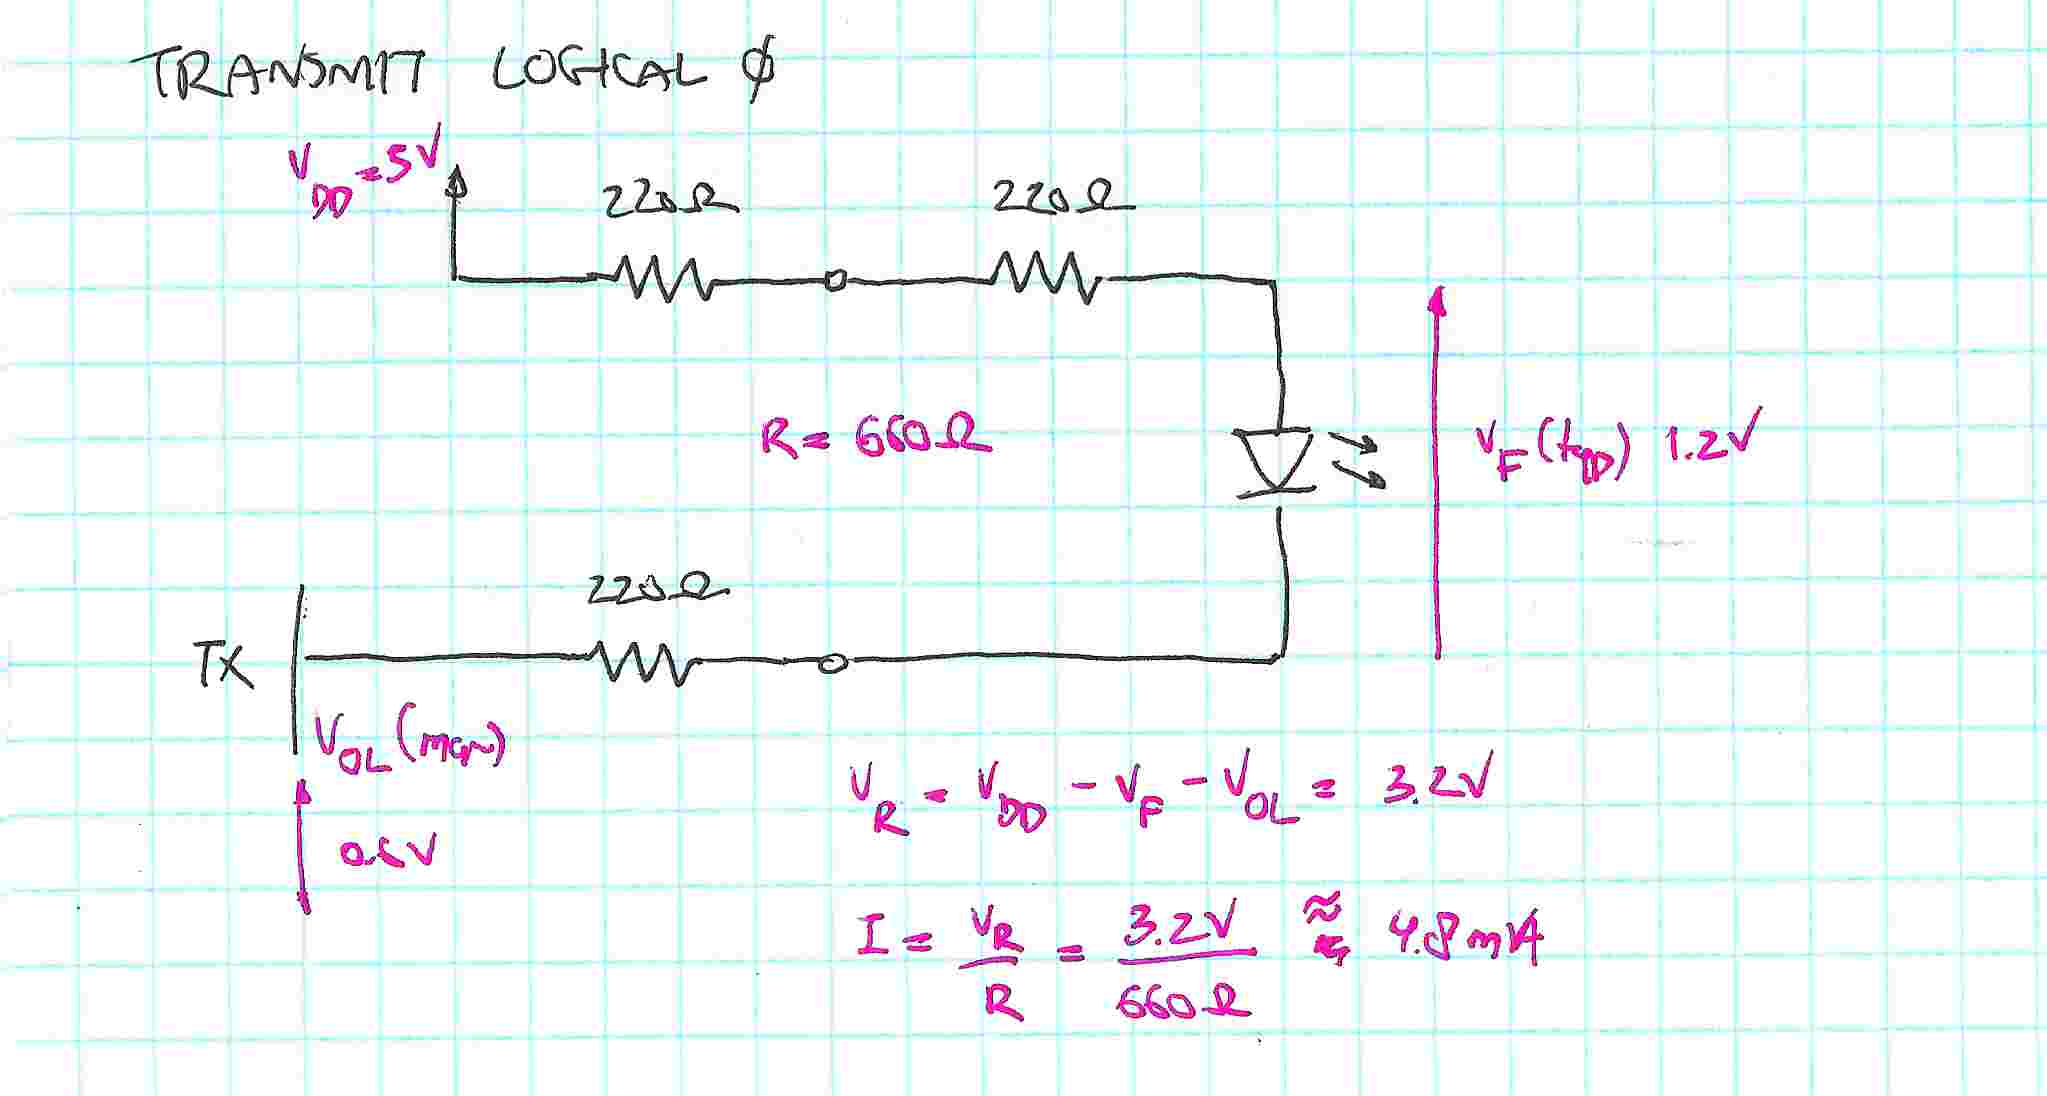 TRANSMIT LOGICAL ∅
V_DD = 5V
220Ω 220Ω
R = 660Ω
V_F (typ) 1.2V
220Ω
TX
V_OL (max)
0.6V
V_R = V_DD - V_F - V_OL = 3.2V
I = V_R / R = 3.2V / 660Ω ≈ 4.8mA